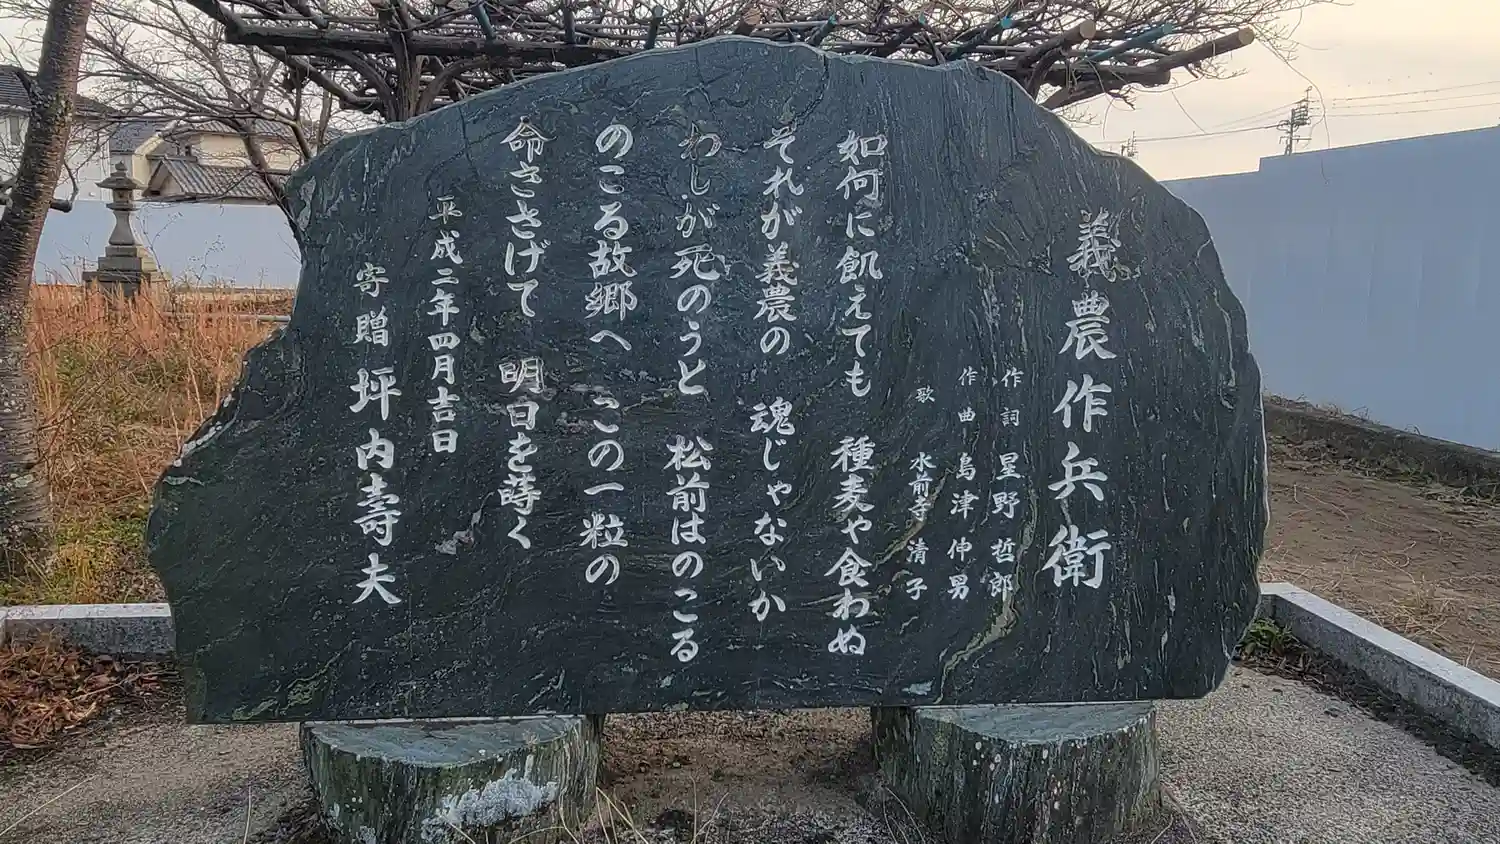 義農作兵衛
作詞 星野哲郎
作曲 島津伸男
歌 水前寺清子
如何に飢えても 種麦や食わぬ
それが義農の 魂じゃないか
わしが死のうと 松前はのこる
のこる故郷へ この一粒の
命ささげて 明日を蒔く
平成二年四月吉日
寄贈 坪内壽夫